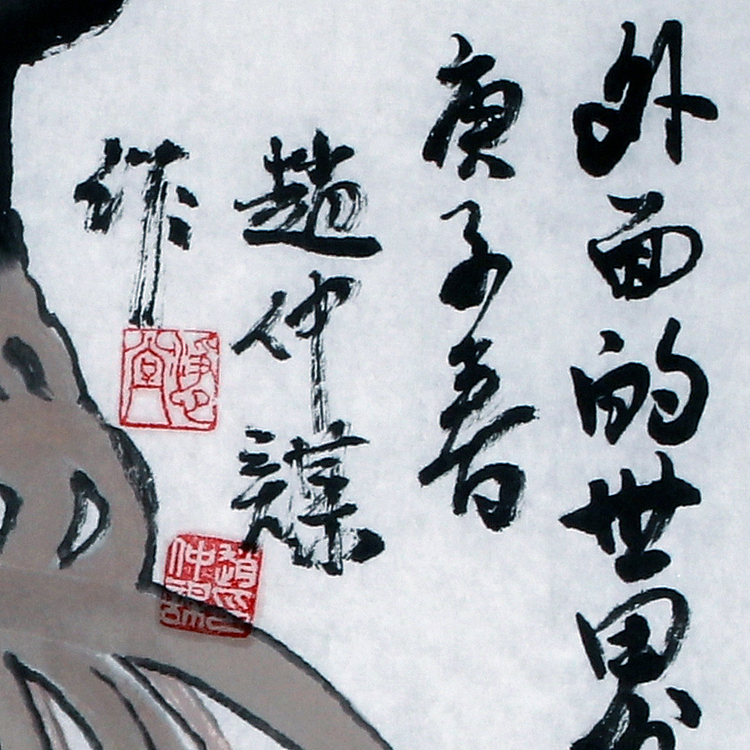 外面的世界
庚子春
趙仲謀
作